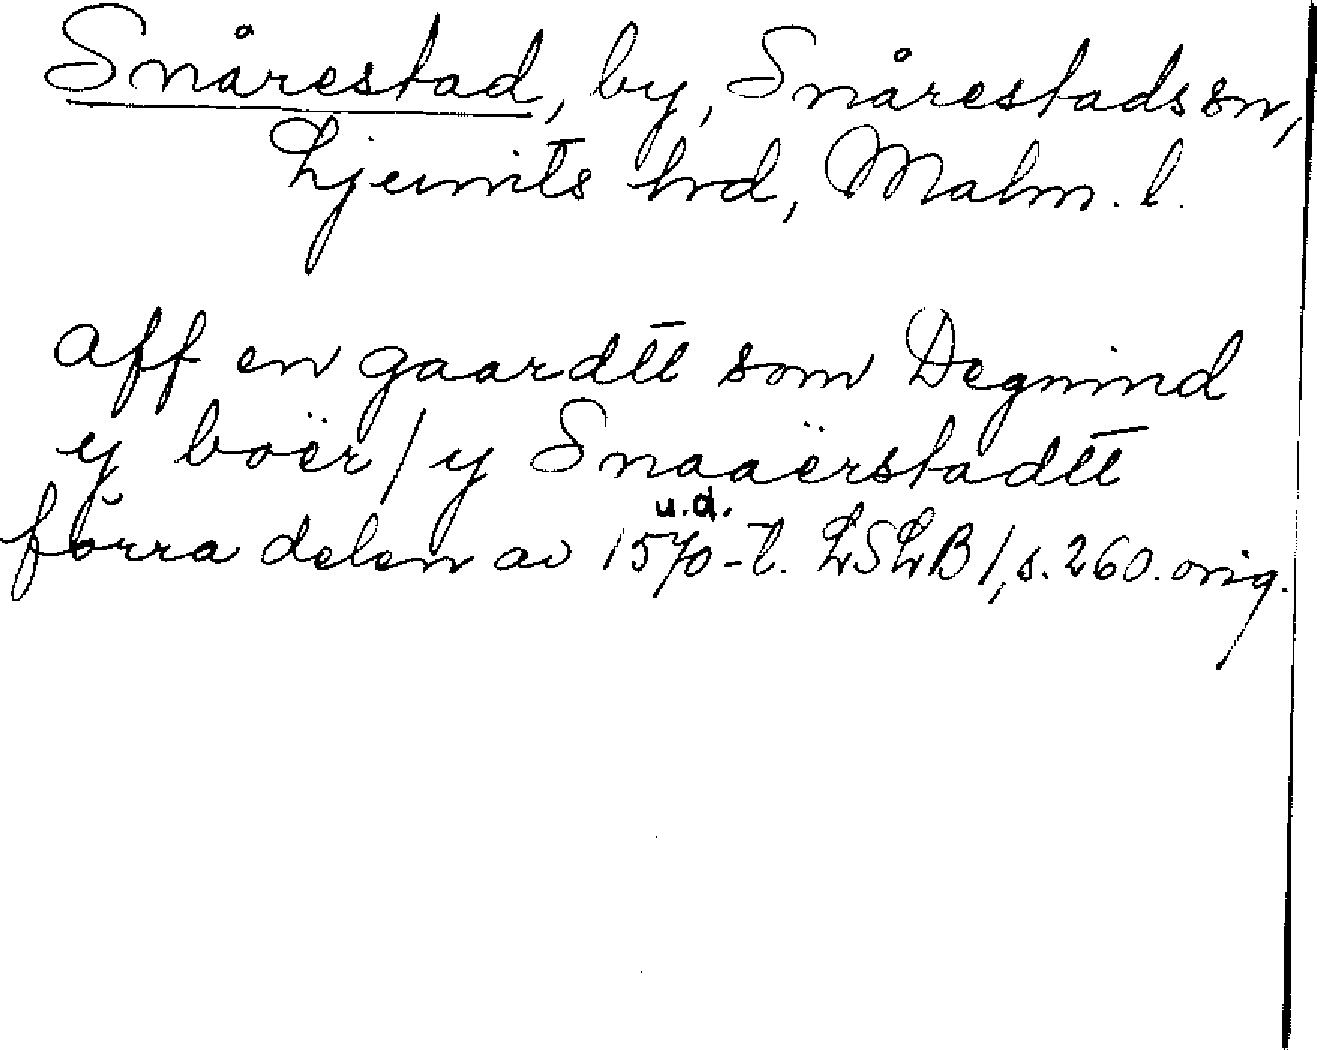 Snårestad, by, Snårestads sn,
Ljunits hd, Malm. l.
Aff en gaardtt som Degnind
y boër / y Snaaërstadtt
u.d.
förra delen av 1570-t. LSLB 1, s. 260. orig.